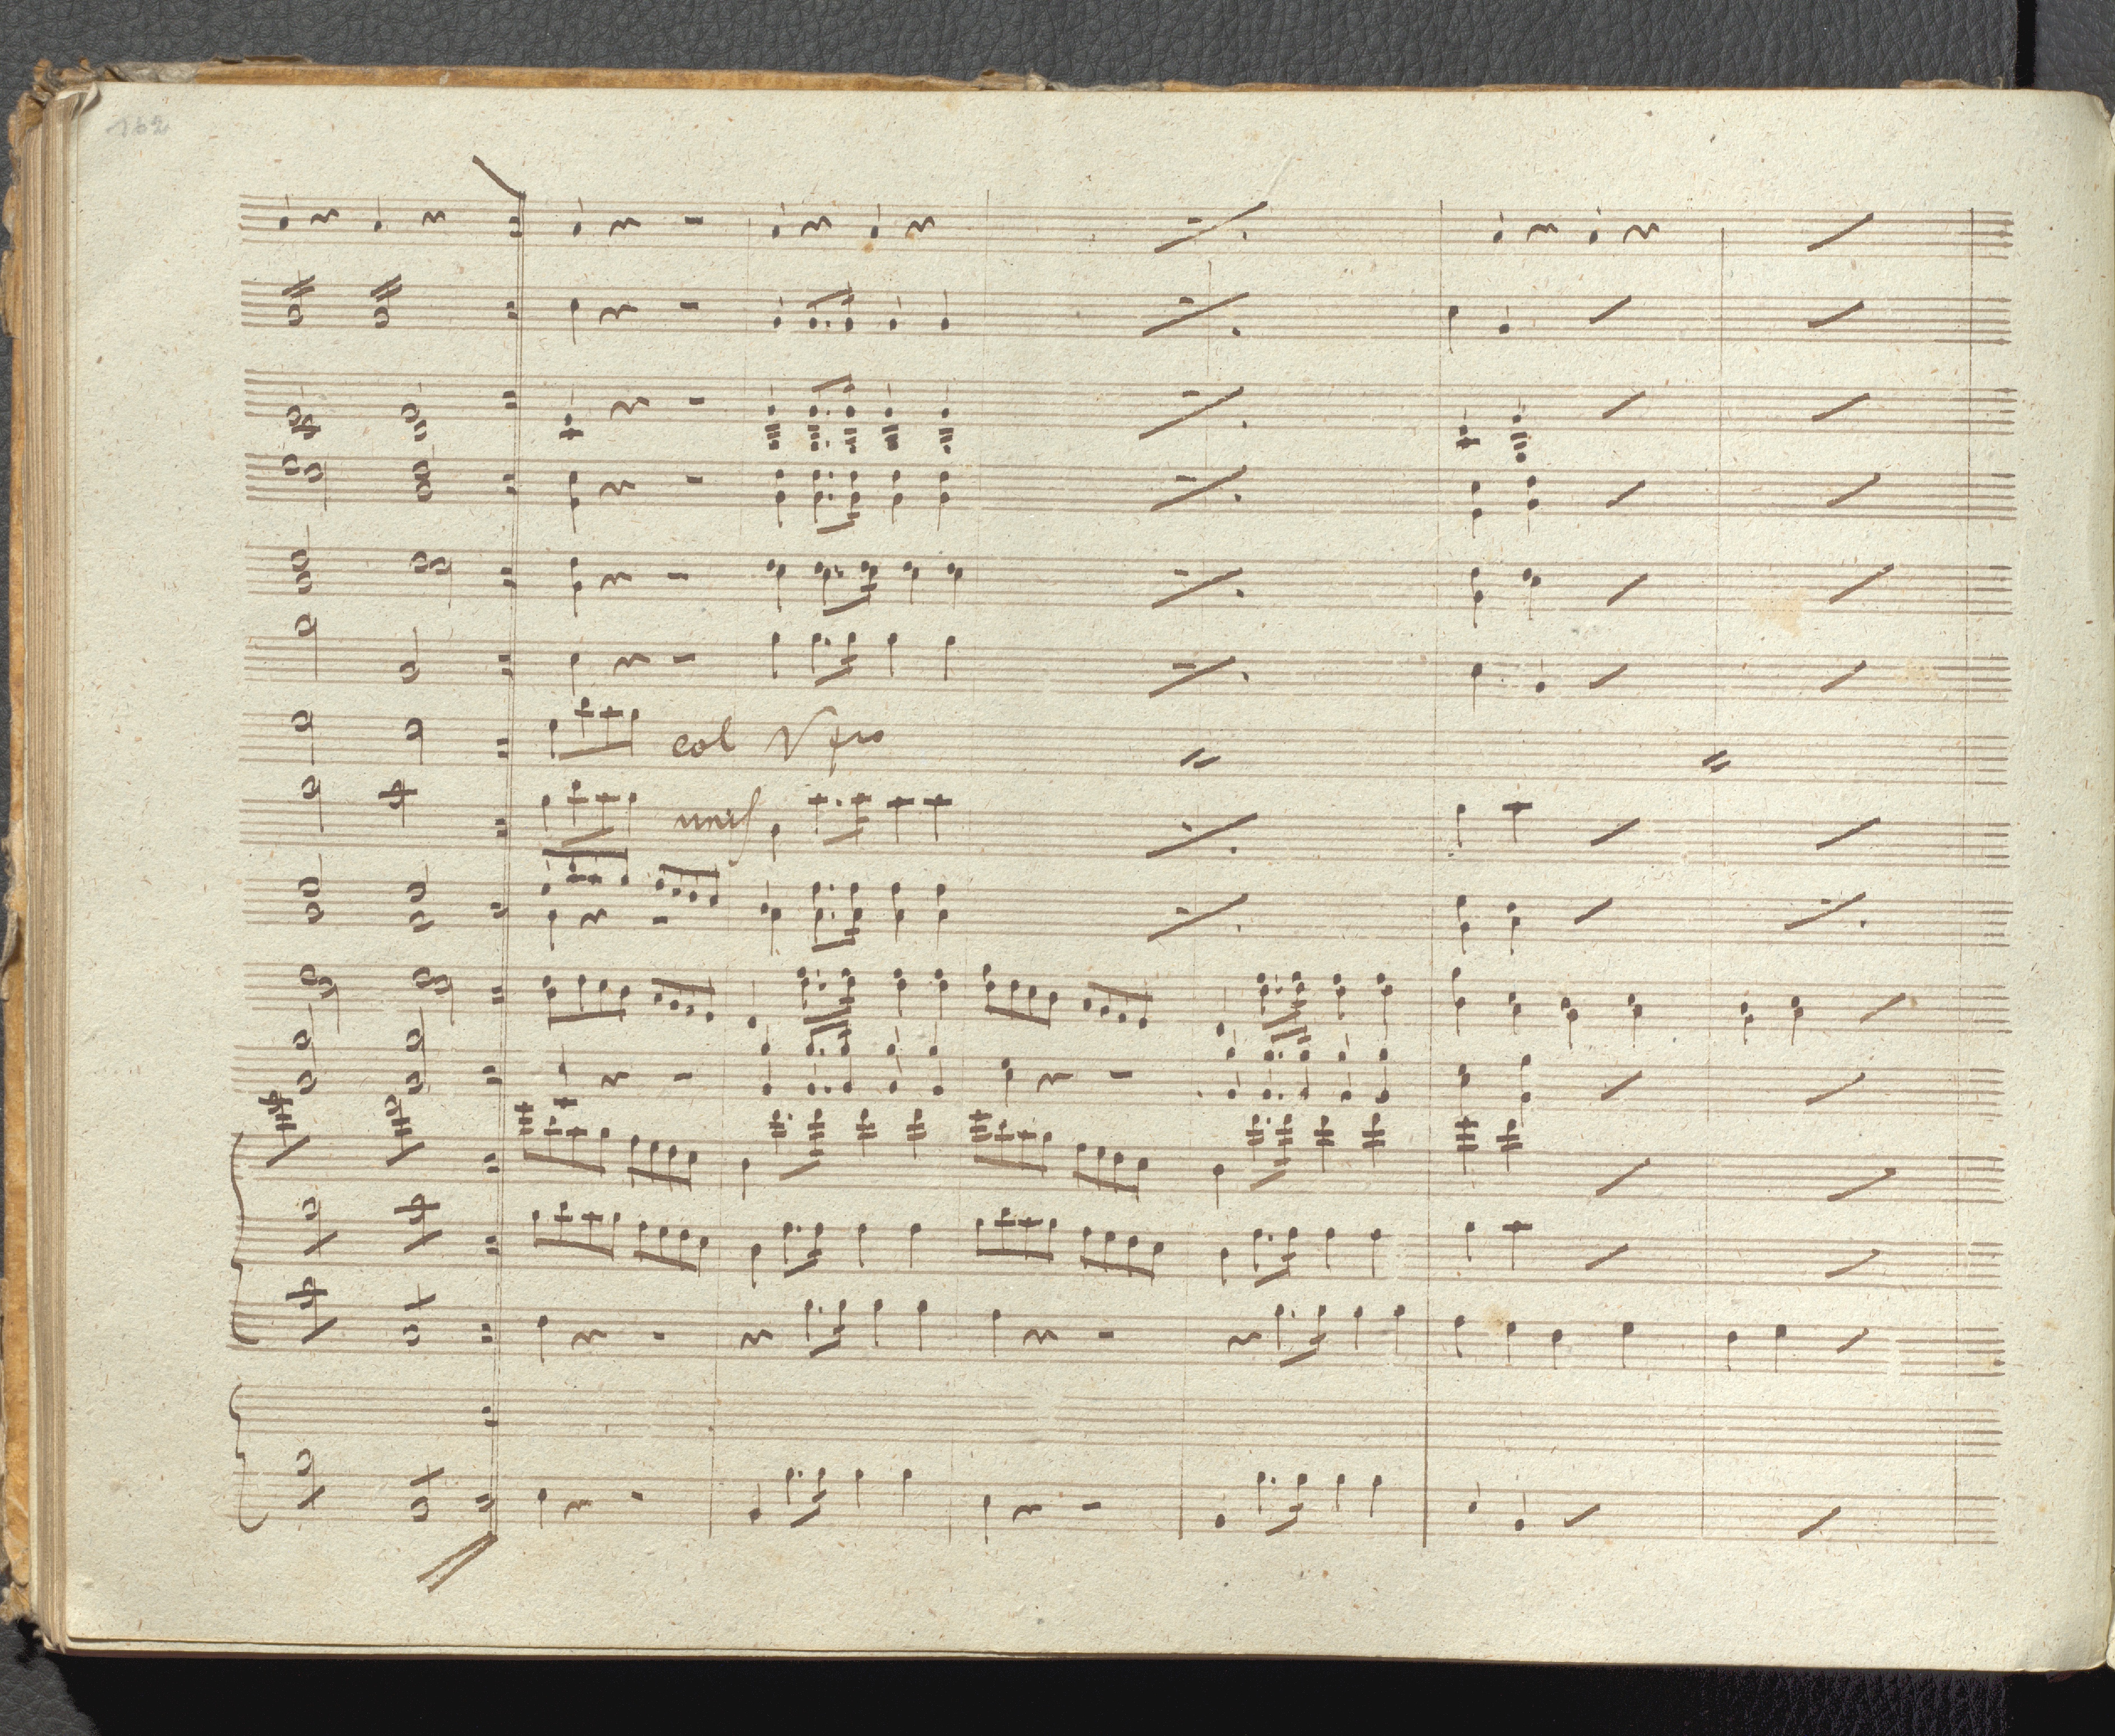 162
col Vno
unis